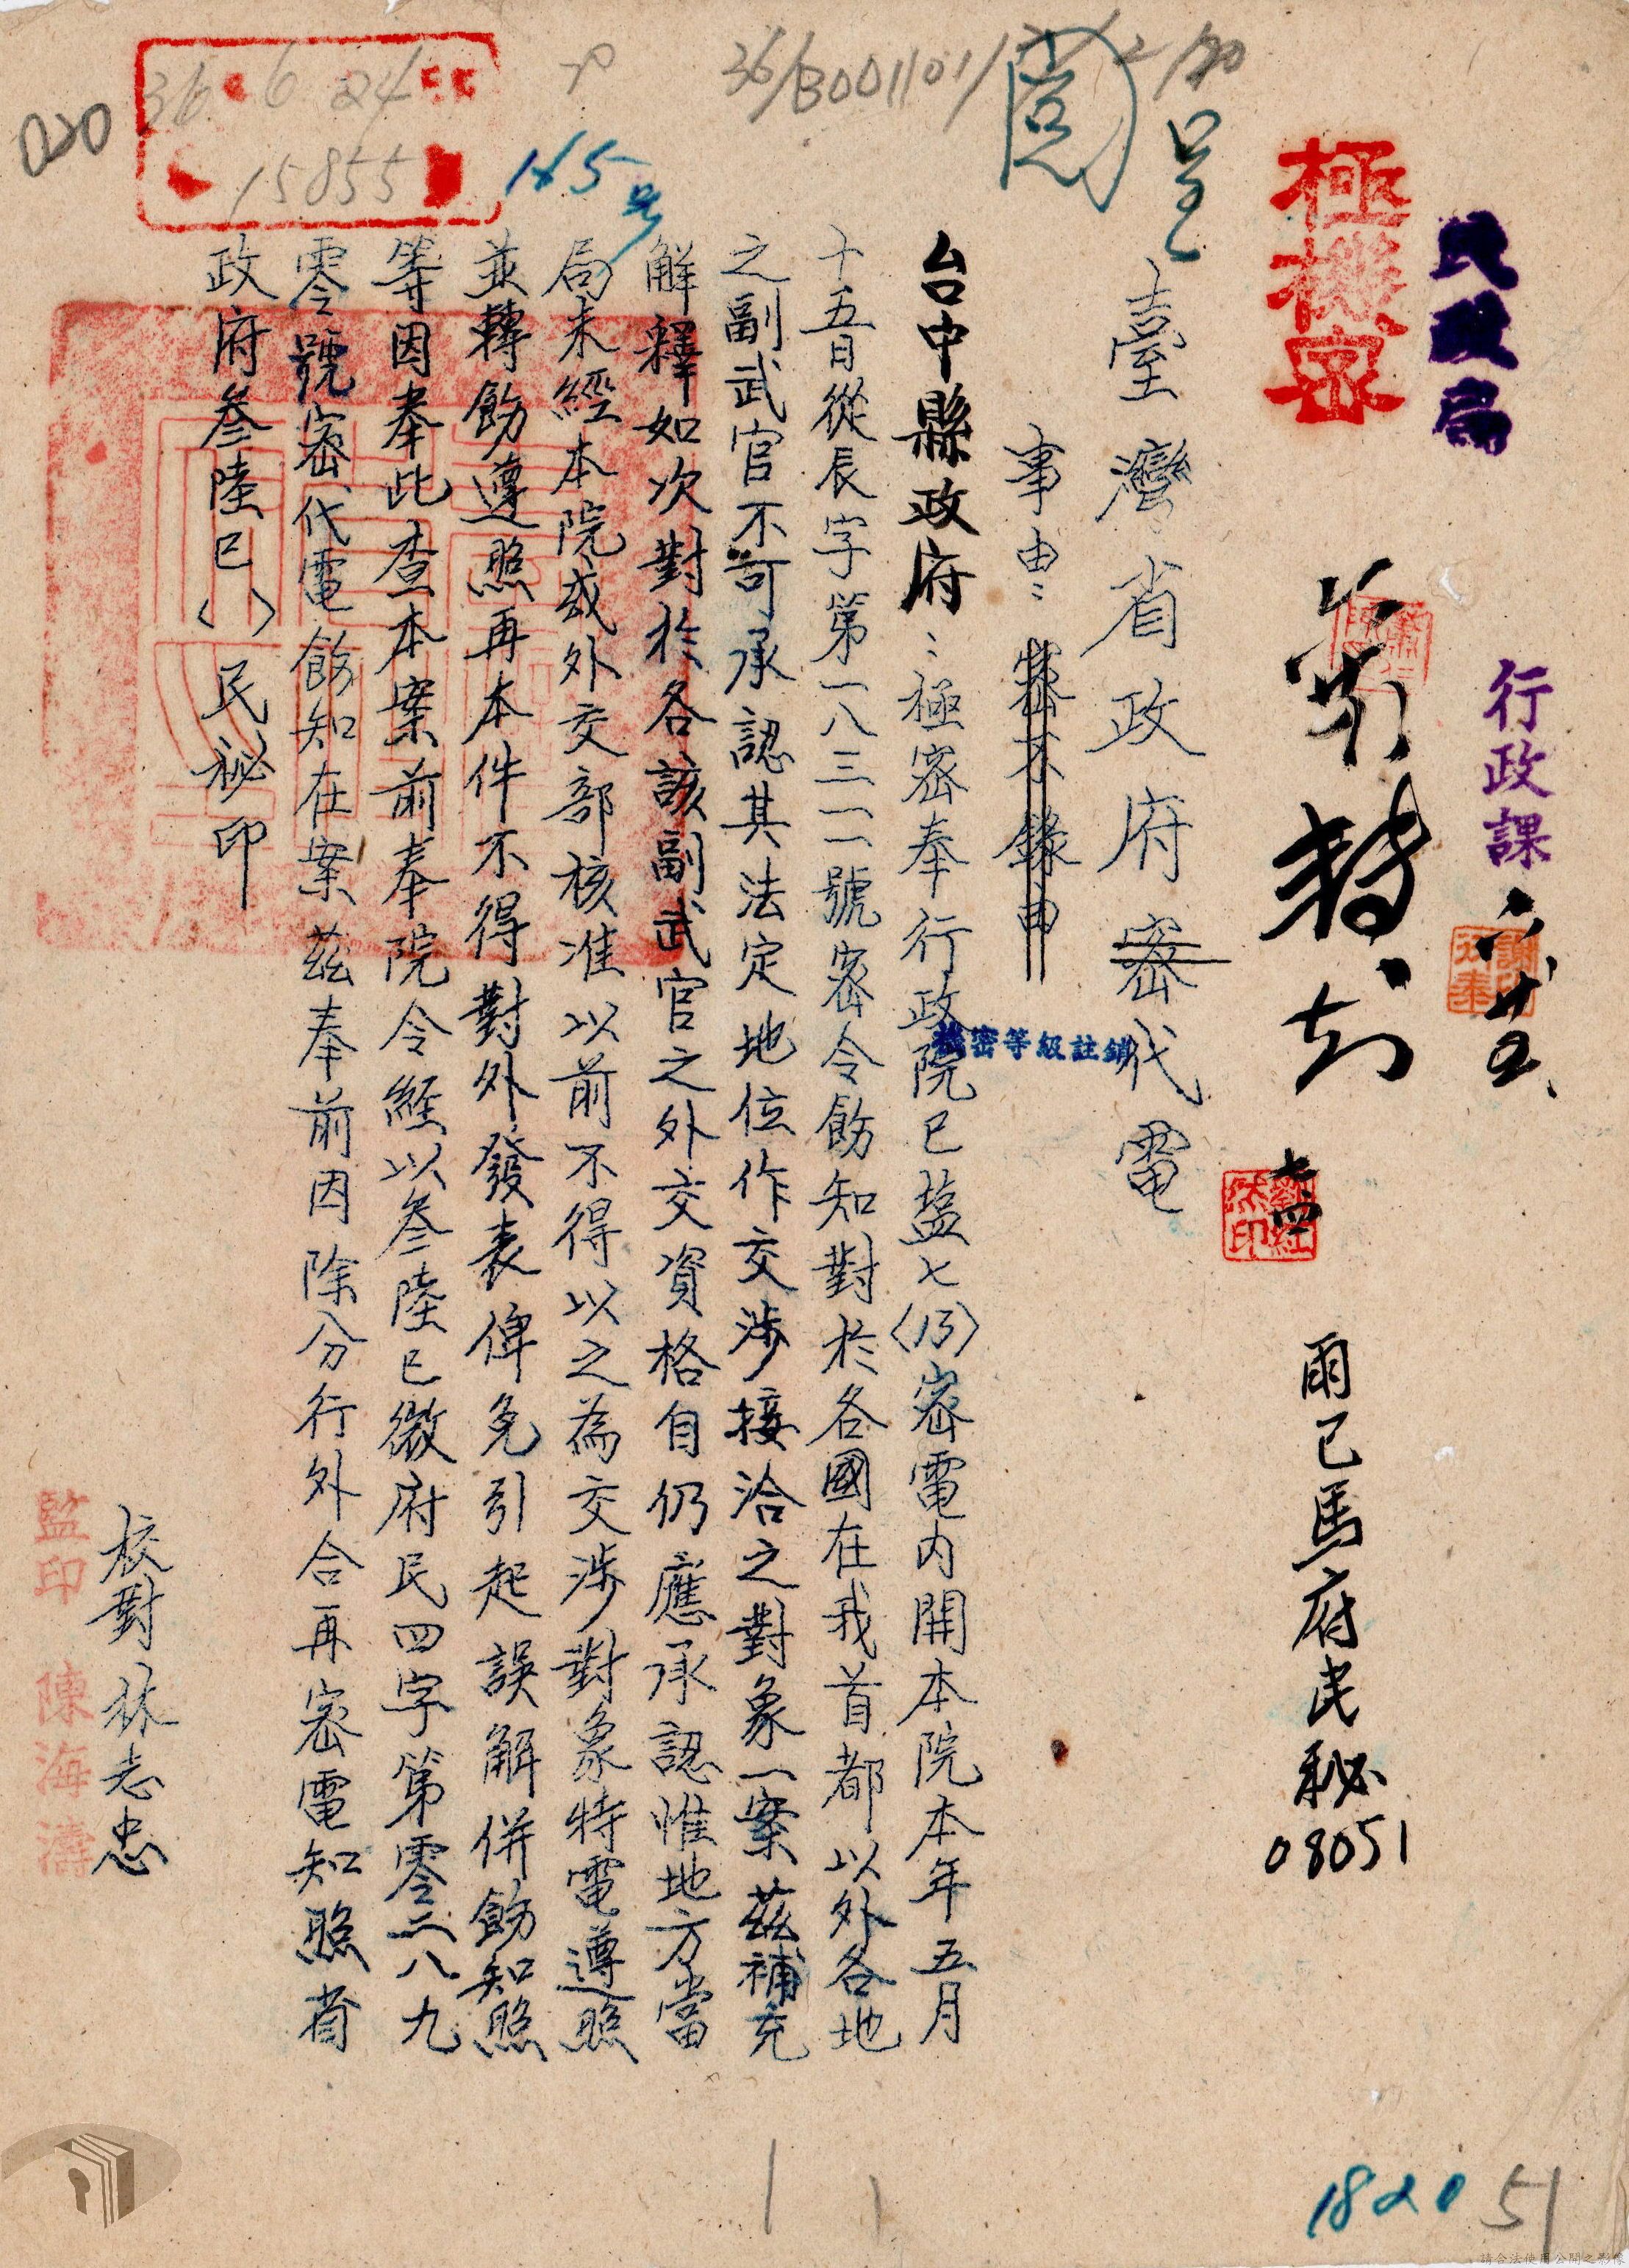 民政局
行政課
極機密
雨已馬府民秘
08051
呈
閱
36/B001101/
臺灣省政府密代電
事由：密不錄由
機密等級註銷
台中縣政府：極密奉行政院已塩七〈13〉密電內開本院本年五月
十五日從辰字第一八三一一號密令飭知對於各國在我首都以外各地
之副武官不可承認其法定地位作交涉接洽之對象一案茲補充
解釋如次對於各該副武官之外交資格自仍應承認惟地方當
局未經本院或外交部核准以前不得以之為交涉對象特電遵照
並轉飭遵照再本件不得對外發表俾免引起誤解併飭知照
等因奉此查本案前奉院令經以叁陸已微府民四字第零二八九
零號密代電飭知在案茲奉前因除分行外合再密電知照省
政府叁陸已〈〉民秘印
校對林志忠
監印 陳海濤
36 6 24
15855
165号
020
1820
51
請合法使用公開之影像